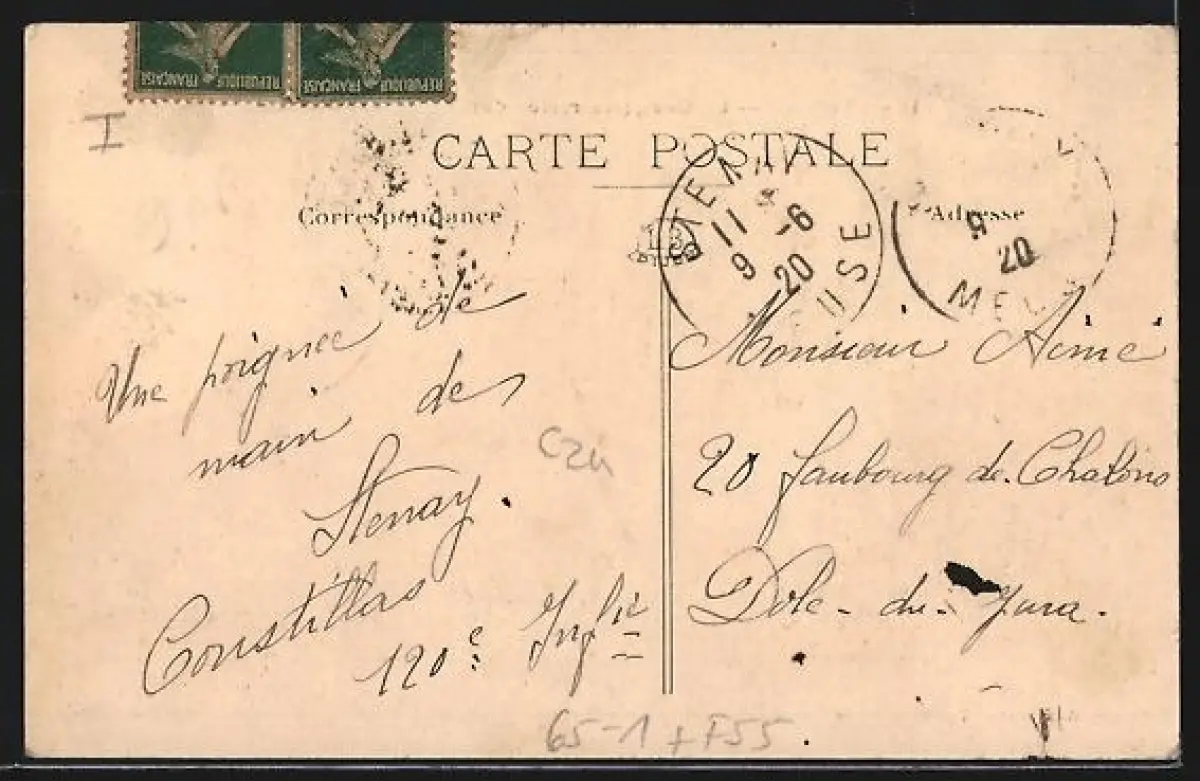 REPUBLIQUE FRANÇAISE REPUBLIQUE FRANÇAISE
I
CARTE POSTALE
Correspondance
Adresse
11 -6
9 20
20
Une poignée de
main de
Stenay.
Constillas
120e Infie
C24
65-1 + F55.
Monsieur Aimé
20 faubourg de Chalons
Dole - du - Jura.